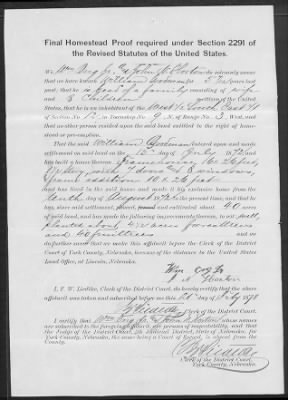 Final Homestead Proof required under Section 2291 of
the Revised Statutes of the United States.
We, Wm Cory Jr & John N. do solemnly swear
that we have known William for 5 years last
past; that he is head of a family consisting of wife
and 8 children
States; that he is an inhabitant of the
of Section No. 12 in Township No. 9 N. of Range No. 3 West, and
that no other person resided upon the said land entitled to the right of home-
stead
That the said William entered upon and made
settlement on said land on the day of July 1872 and
has built a house thereon Frame house 16 x 26 feet,
story, with 7 doors & 8 windows,
addition 10 x 26 feet
and has lived in the said house and made it his exclusive home from the
tenth day of August 1872 to the present time, and that he
has, since said settlement, plowed, fenced and cultivated about 40 acres
of said land, and has made the following improvements thereon, to wit: well,
planted about 4 1/2 acres forest trees
and 40 fruit trees and we
do further swear that we make this affidavit before the Clerk of the District Court
of York County, Nebraska, by reason of the distance to the United States
Land Office, at Lincoln, Nebraska.
Wm Cory Jr
J. N.
I, F. W. Liedtke, Clerk of the District Court, do hereby certify that the above
affidavit was taken and subscribed before me this day of July 1878
Clerk of the District Court.
I certify that Wm Cory Jr & John N. whose names
are subscribed to the foregoing affidavit, are persons of respectability, and that
the Judge of the District Court, Judicial District, State of Nebraska, for
York County, Nebraska, the same being a Court of Record, is absent from
the County.
Clerk of the District Court,
York County, Nebraska.